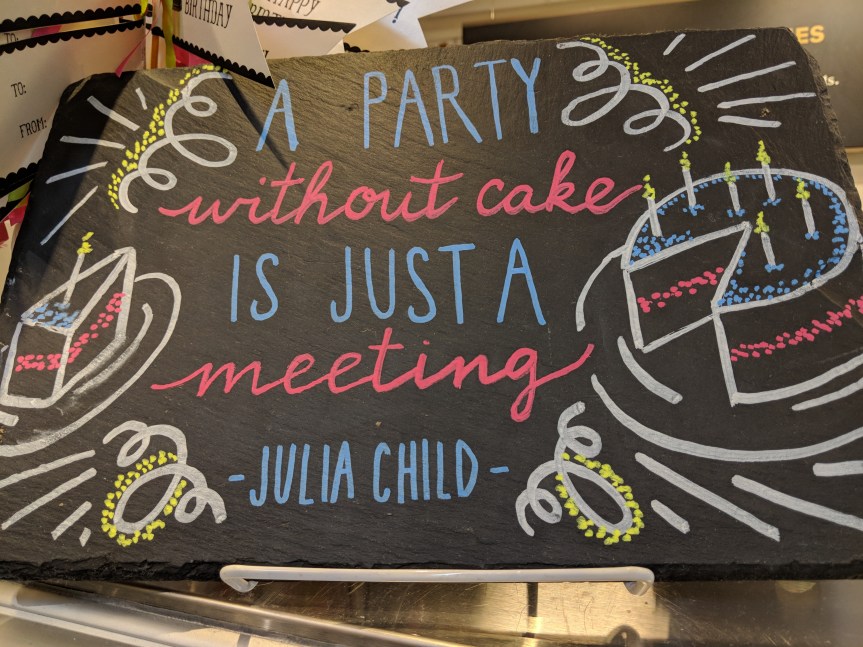 BIRTHDAY
HAPPY
TO:
TO:
FROM:
ES
ds.
A PARTY
without cake
IS JUST A
meeting
-JULIA CHILD-